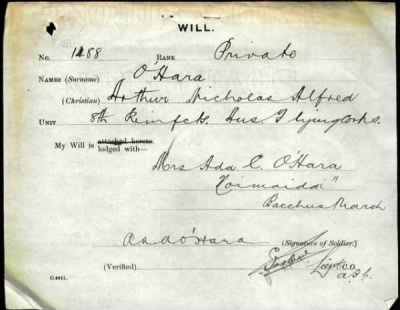 WILL.
No. 1488 RANK Private
NAMES (Surname) O'Hara
(Christian) Arthur Nicholas Alfred
UNIT 8th Reinfcts. Aus Flying Corps.
My Will is attached hereto.
lodged with—
Mrs Ada C. O'Hara
"
Bacchus Marsh
O'Hara (Signature of Soldier.)
(Verified) Lieut C.O.
C.4851.